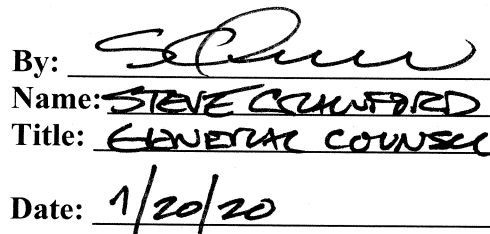 By:
Name: STEVE CRAWFORD
Title: GENERAL COUNSEL
Date: 1/20/20